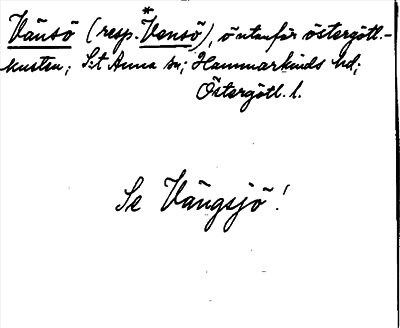 Vänsö (resp. *Vensö), ö utanför östergötl.-
kusten; S:t Anna sn; Hammarkinds hd;
Östergötl. l.
Se Vängsjö!